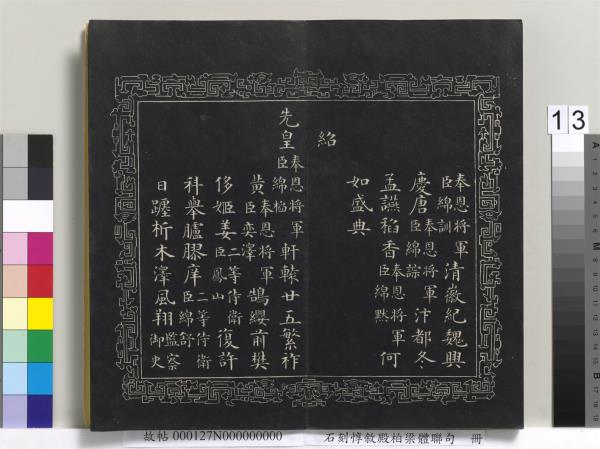 奉恩將軍臣綿訓清徽紀魏興
慶唐奉恩將軍臣綿綜汴都冬
孟讌稻香奉恩將軍臣綿默何
如盛典
紹
先皇奉恩將軍臣綿軒轅廿五繁祚
黃奉恩將軍臣奕澤鵠纓前樊
侈姬姜二等侍衛臣鳳山復許
科舉臚膠庠二等侍衛臣綿舒
日躔析木澤風翔監察御史
13
A
M
15
B
17
故帖 000127N000000000 石刻惇敘殿柏梁體聯句 冊